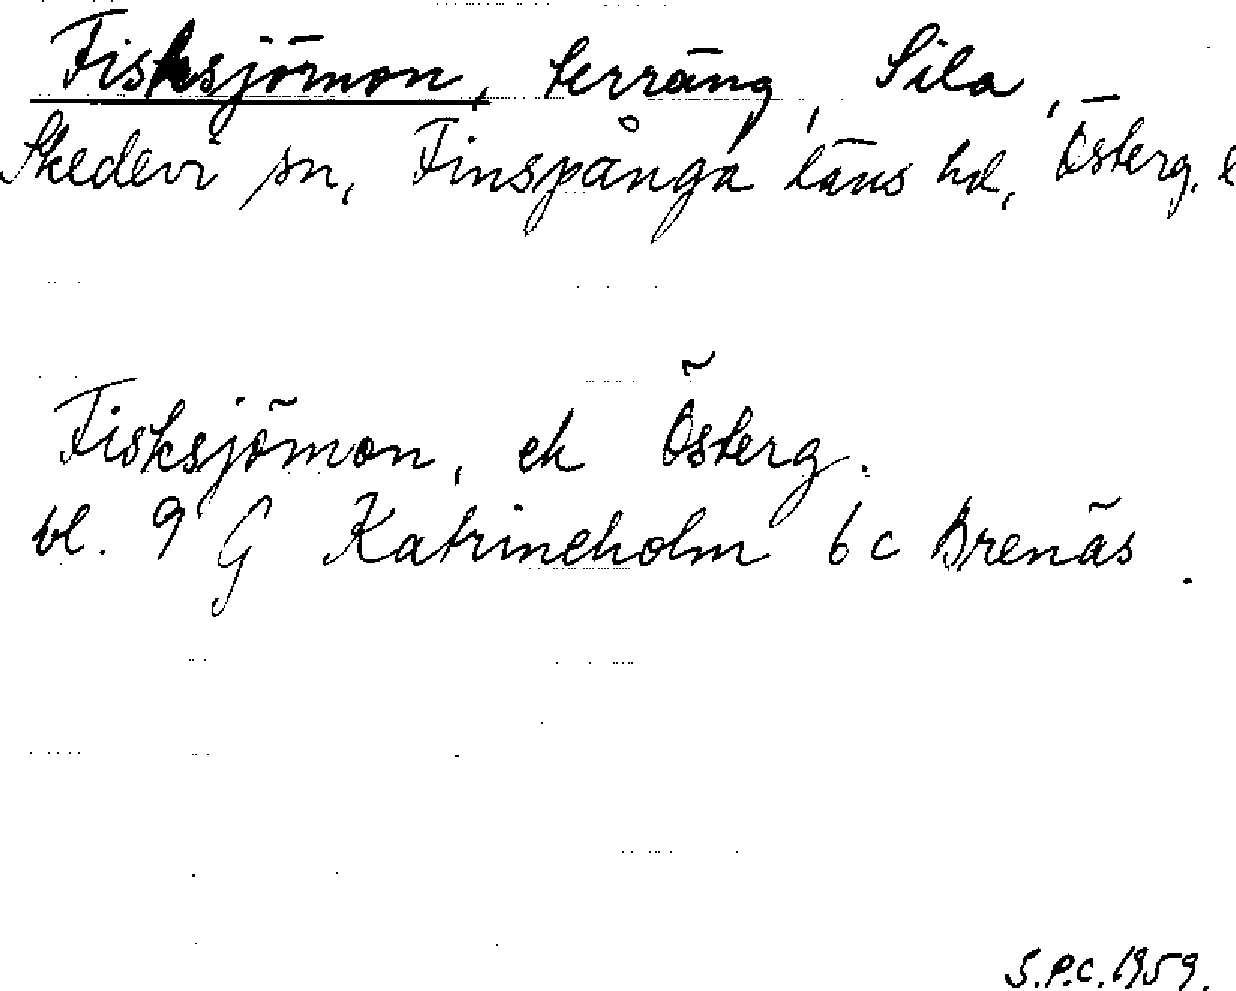 Fisksjömon, terräng, Sila,
Skedevi sn, Finspånga läns hd, Österg. l
Fisksjömon, ek Österg.
bl. 9 G Katrineholm 6 c Brenäs.
S.P.C. 1959.